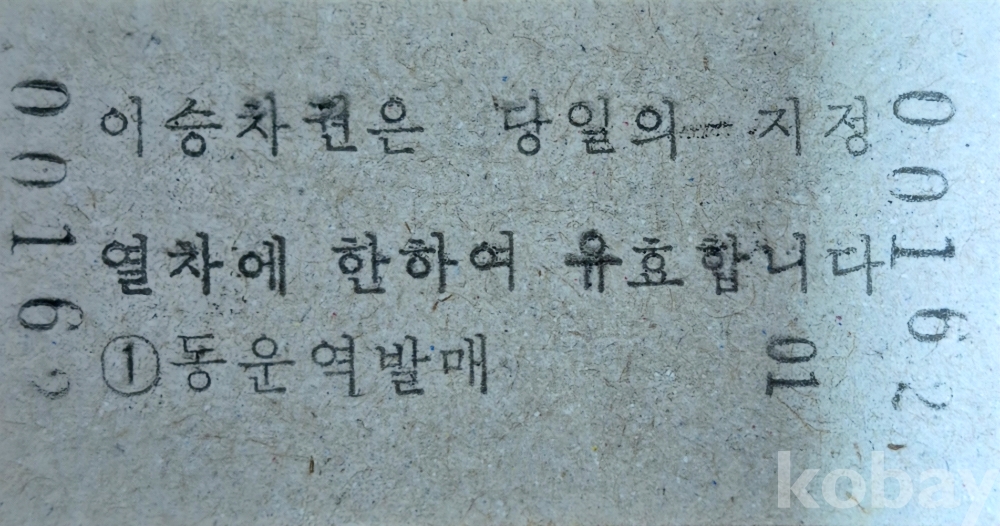 00162
이승차권은 당일의 지정
열차에 한하여 유효합니다
①동운역발매
01
00162
kobay